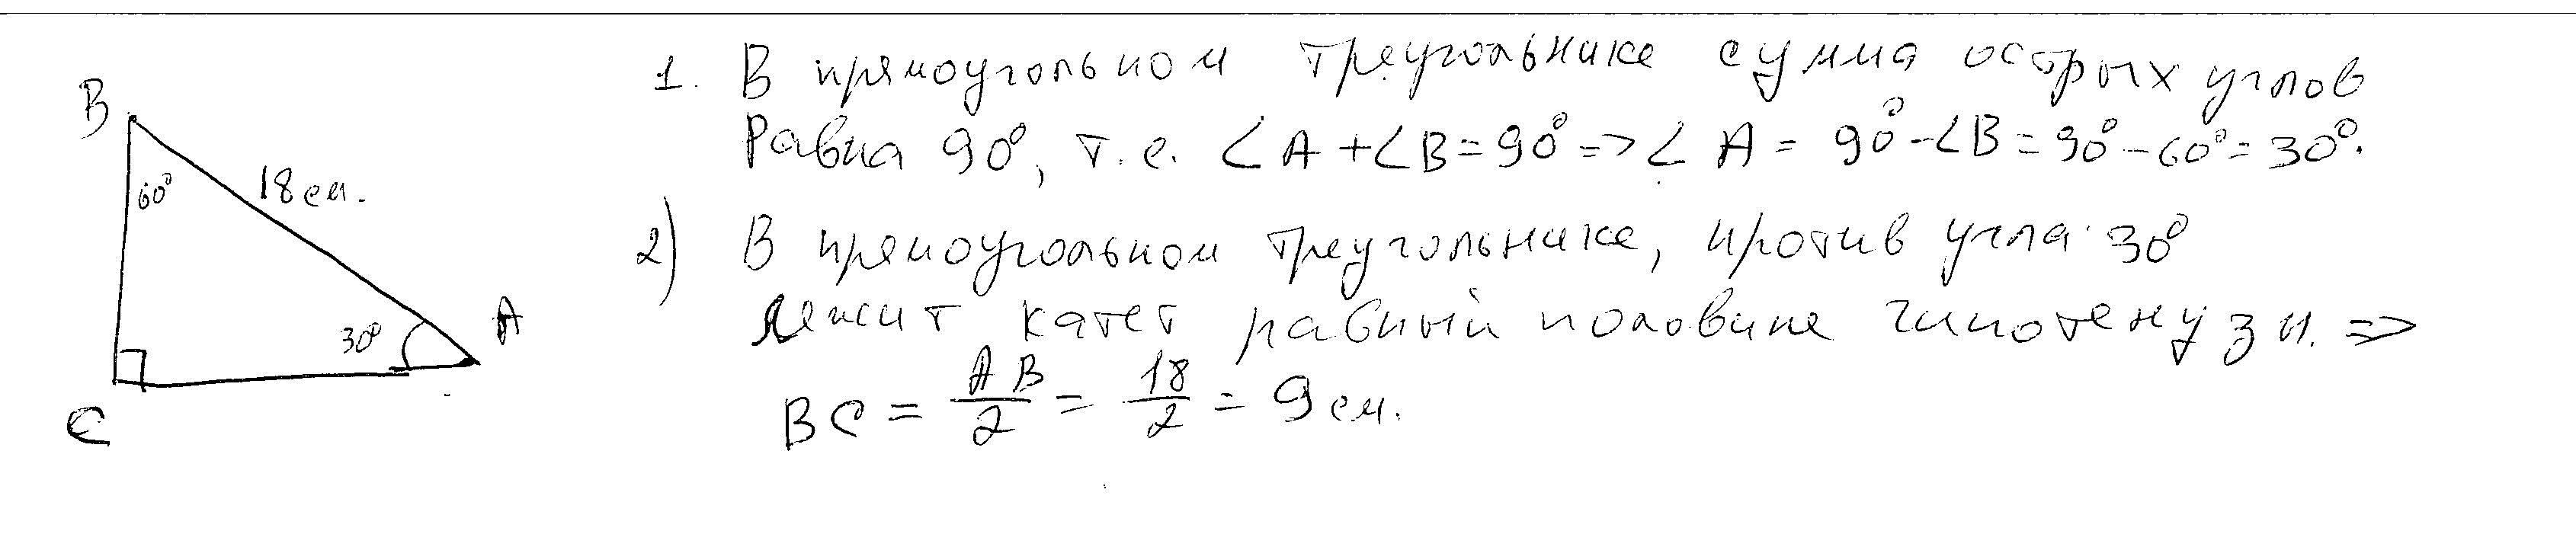 1. В прямоугольном треугольнике сумма острых углов
равна 90°, т.е. ∠A+∠B=90°=>∠A=90°-∠B=90°-60°=30°.
2) В прямоугольном треугольнике, против угла 30°
лежит катет равный половине гипотенузы. =>
BC = AB/2 = 18/2 = 9 см.
B
60°
18 см.
30°
A
C